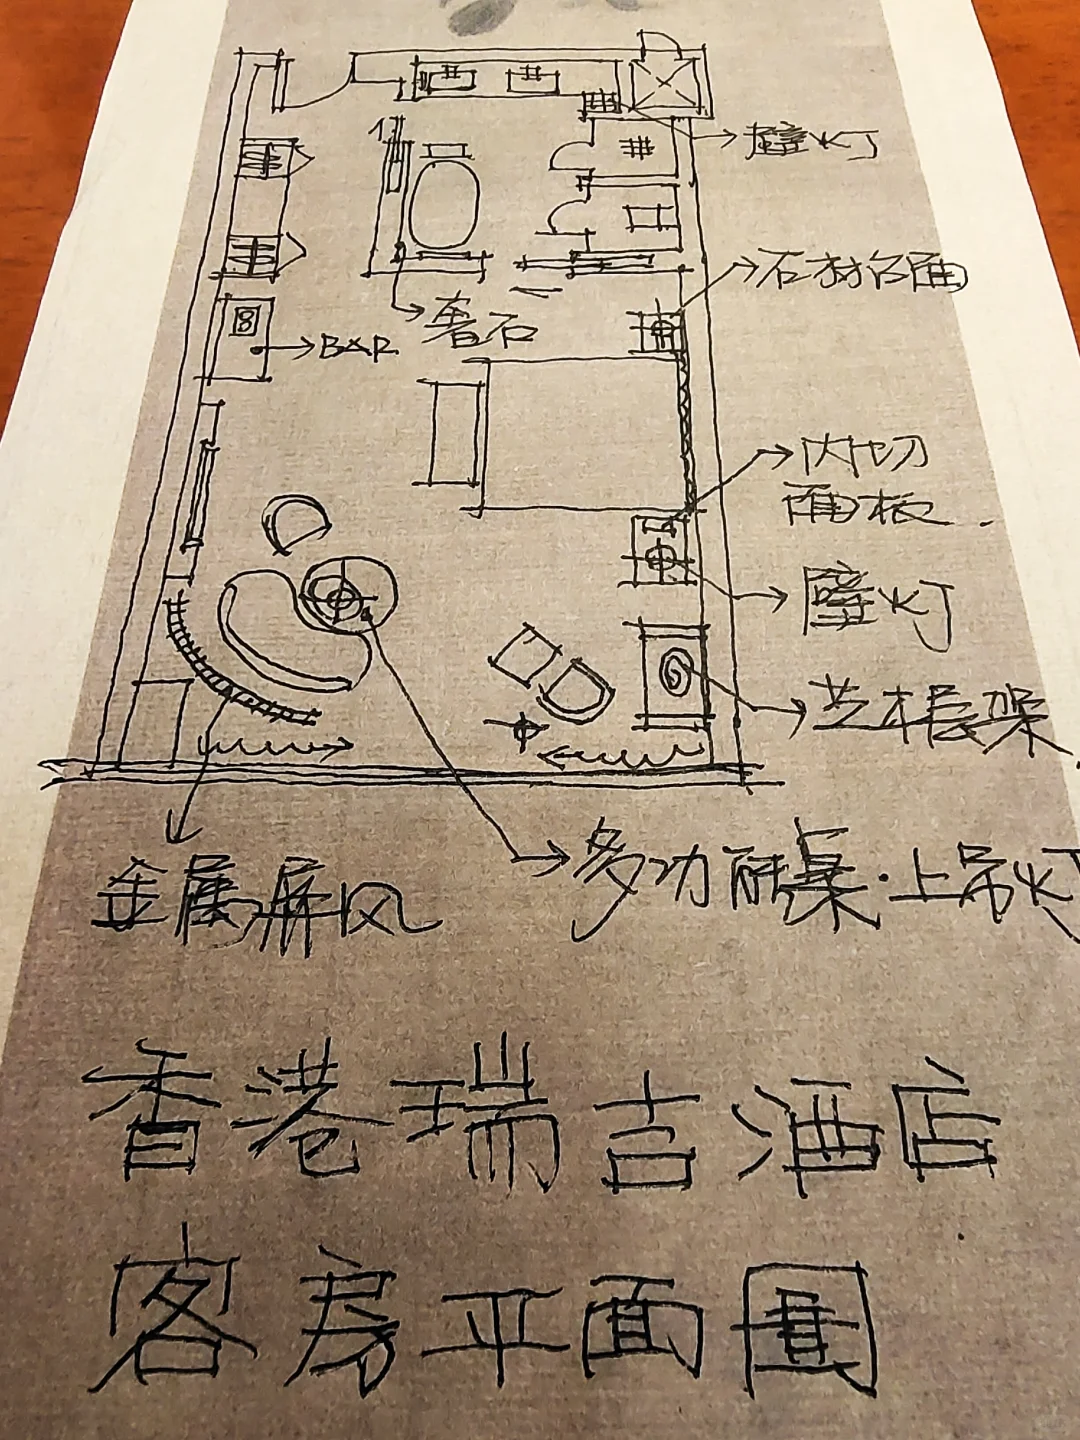 壁灯
石材台面
奢石
BAR
内切
面板.
壁灯
艺术层架.
金属屏风
多功能桌·上吊灯
香港瑞吉酒店
客房平面圖